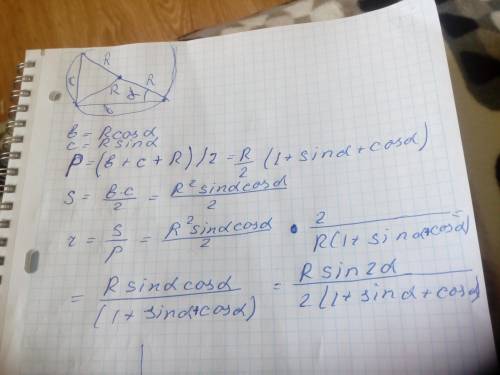 R
c R R
α
b
b = Rcosα
c = Rsinα
P = (b + c + R)/2 = R/2 (1 + sinα + cosα)
S = b·c/2 = R²sinαcosα/2
r = S/P = R²sinαcosα/2 · 2/R(1 + sinα + cosα) =
= R sinαcosα/(1 + sinα + cosα) = R sin2α/2(1 + sinα + cosα)